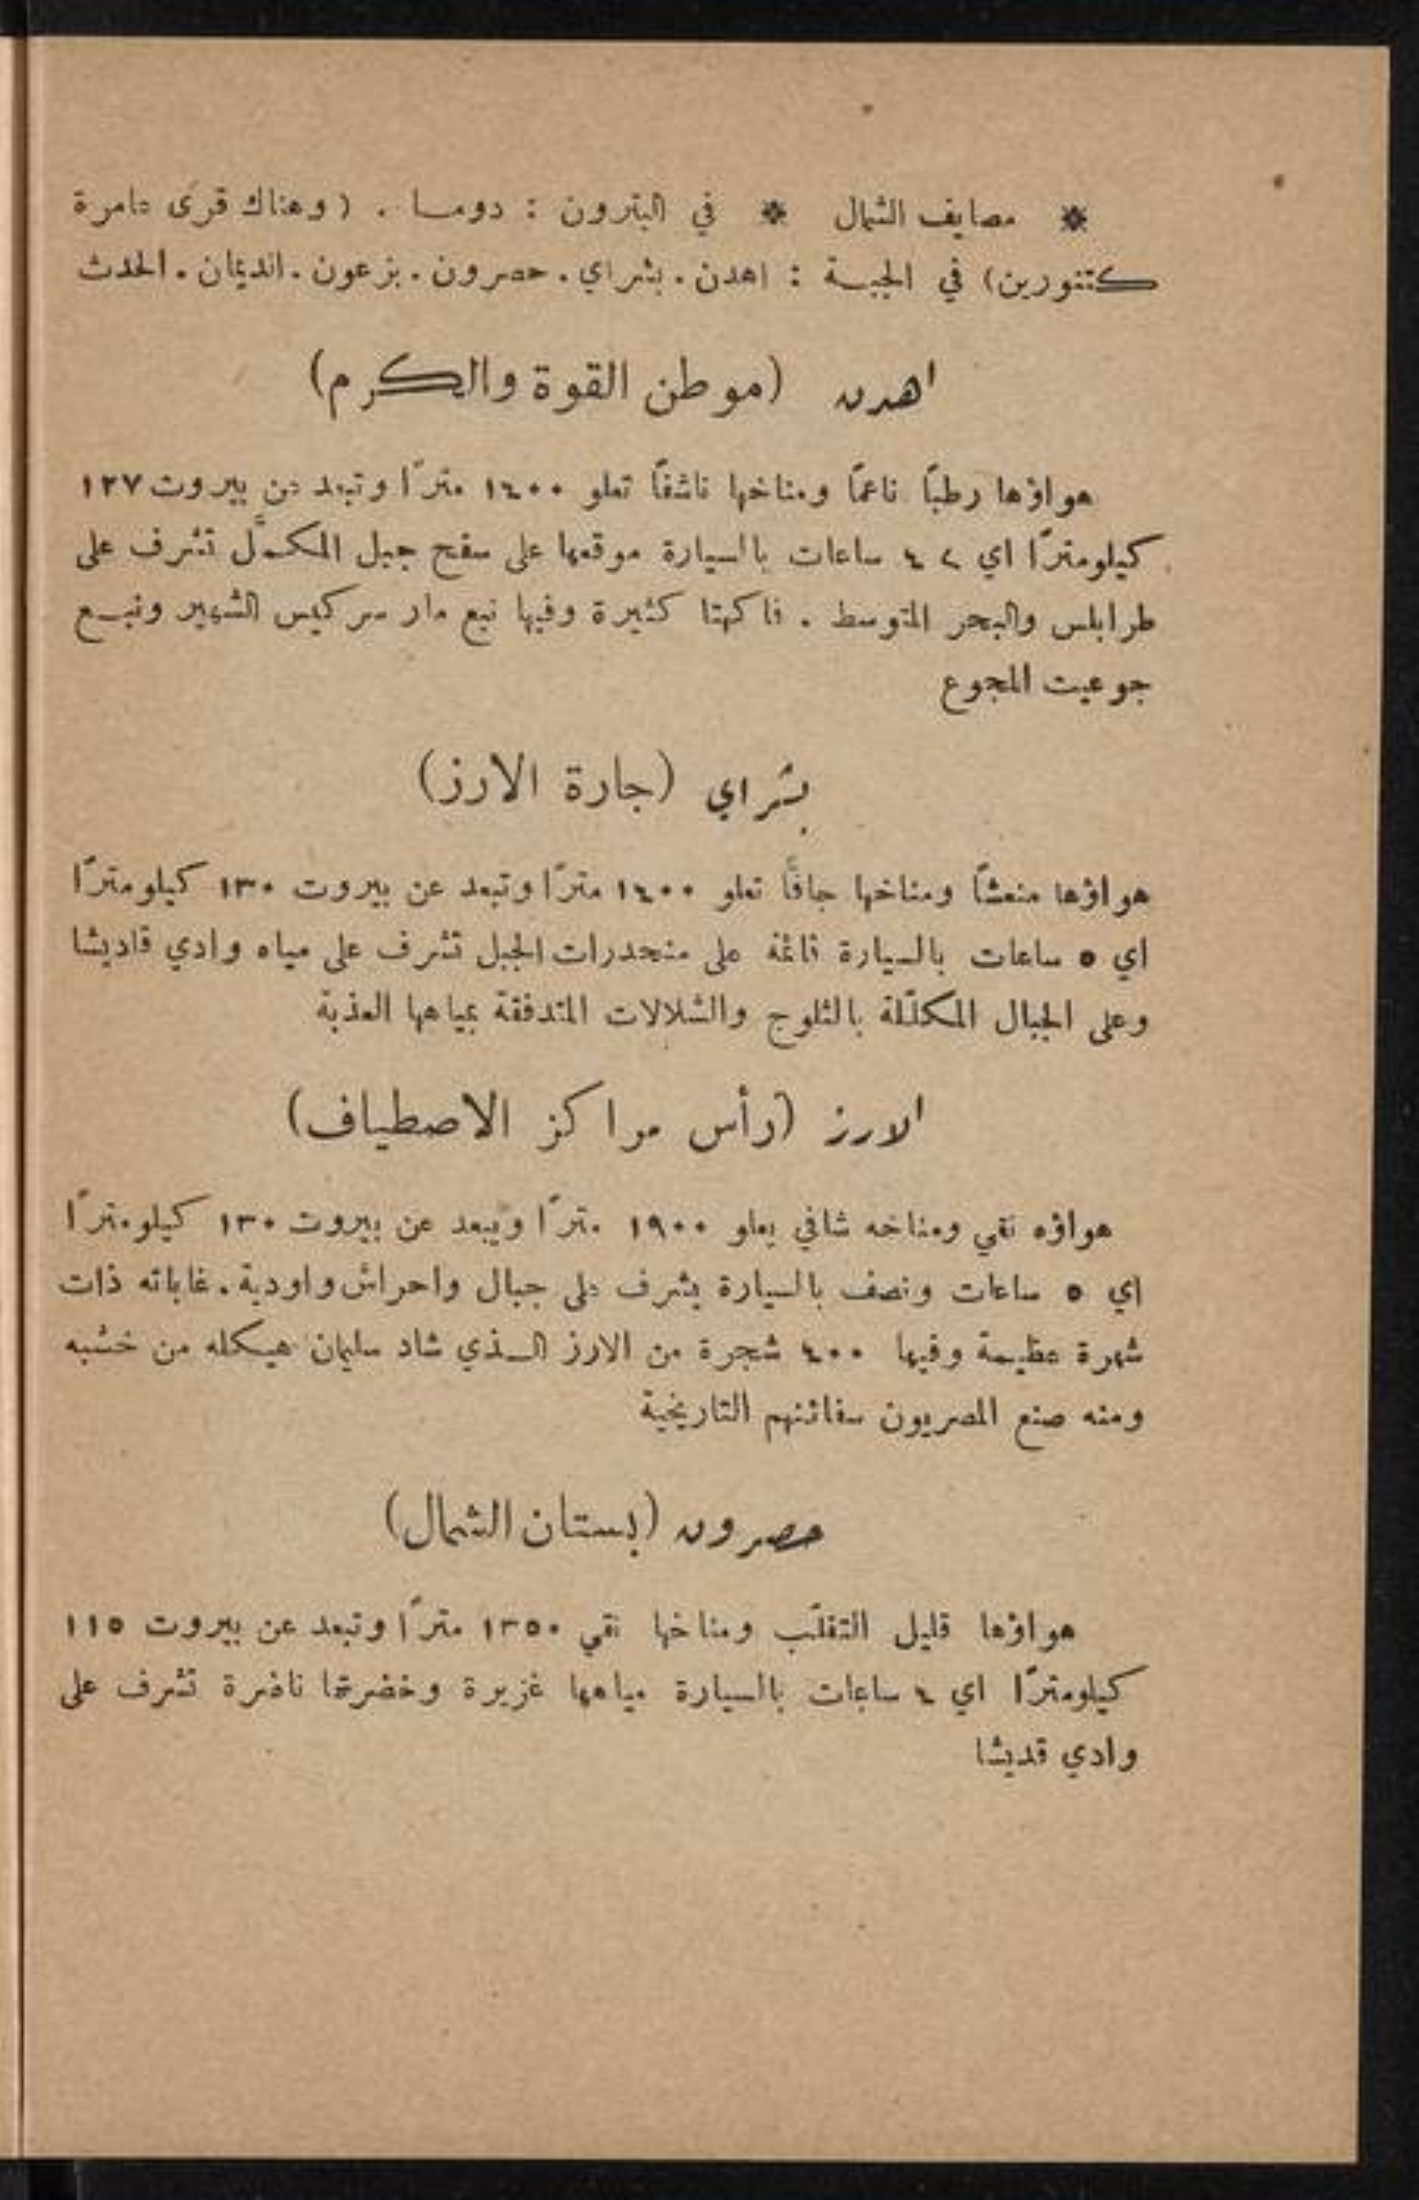 * مصايف الشمال * في البترون : دومـا . ( وهناك قرى عامرة
كتنورين) في الجبـة : اهدن . بشراي . حصرون . بزعون . الديمان . الحدث
اهدن (موطن القوة والكرم)
هواؤها رطباً ناعماً ومناخها ناشفاً تعلو ١٤٠٠ متراً وتبعد عن بيروت ١٢٧
كيلومتراً اي ٤ ساعات بالسيارة موقعها على سفح جبل المكمّل تشرف على
طرابلس والبحر المتوسط . فاكهتا كثيرة وفيها نبع مار سركيس الشهير ونبـع
جوعيت المجوع
بشراي (جارة الارز)
هواؤها منعشاً ومناخها جافاً تعلو ١٤٠٠ متراً وتبعد عن بيروت ١٣٠ كيلومتراً
اي ٥ ساعات بالسيارة قائمة على منحدرات الجبل تشرف على مياه وادي قاديشا
وعلى الجبال المكلّلة بالثلوج والشلالات المتدفقة بمياهها العذبة
الارز (رأس مراكز الاصطياف)
هواؤه نقي ومناخه شافي يعلو ١٩٠٠ متراً ويبعد عن بيروت ١٣٠ كيلومتراً
اي ٥ ساعات ونصف بالسيارة يشرف على جبال واحراش واودية . غاباته ذات
شهرة عظيمة وفيها ٤٠٠ شجرة من الارز الـذي شاد سليمان هيكله من خشبه
ومنه صنع المصريون سفائنهم التاريخية
حصرون (بستان الشمال)
هواؤها قليل التقلّب ومناخها نقي ١٣٥٠ متراً وتبعد عن بيروت ١١٥
كيلومتراً اي ٤ ساعات بالسيارة مياهها غزيرة وخضرتها ناضرة تشرف على
وادي قديشا